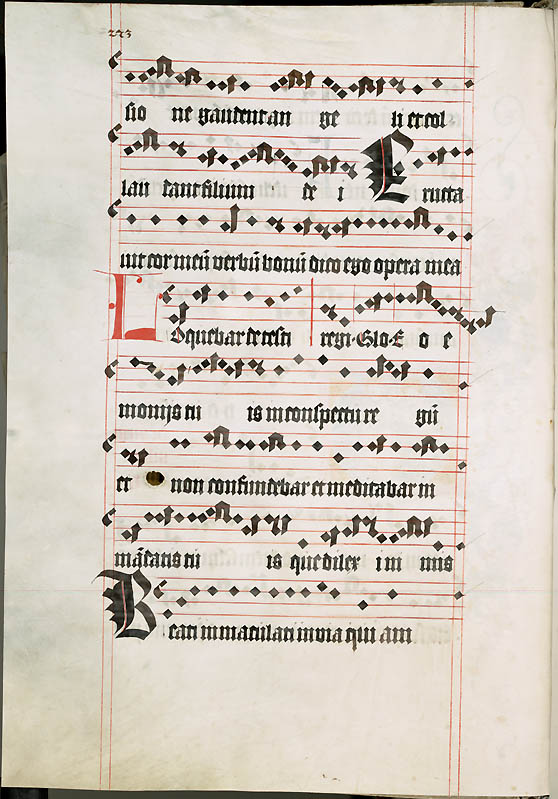 223
sio ne gaudent an ge li et col
lau dant filium de i Eructa
uit cor meū verbū bonū dico ego opera mea
Loquebar de testi regi·Glo·E o e
monijs tu is in conspectu re gū
et non confundebar et meditabar in
mādatis tu is que dilex i ni mis
Beati immaculati in via qui am